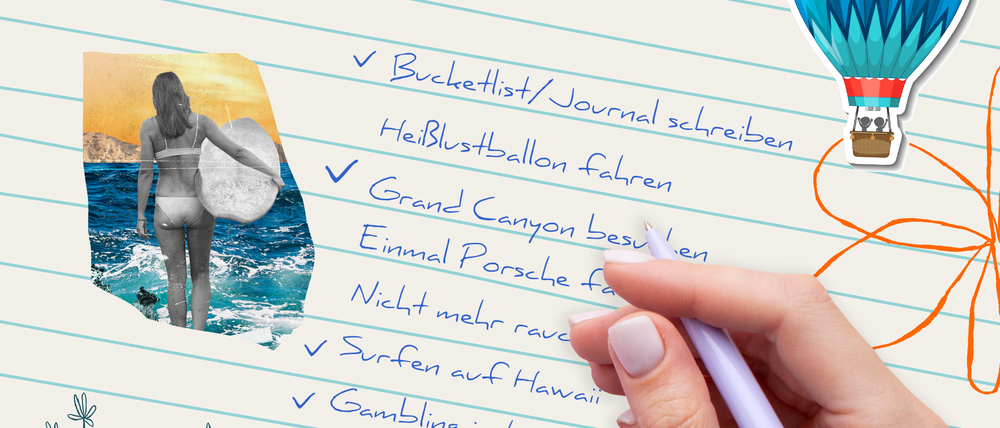 ✓ Bucketlist/Journal schreiben
Heißlustballon fahren
✓ Grand Canyon besuchen
Einmal Porsche
Nicht mehr
✓ Surfen auf Hawaii
✓ Gambling